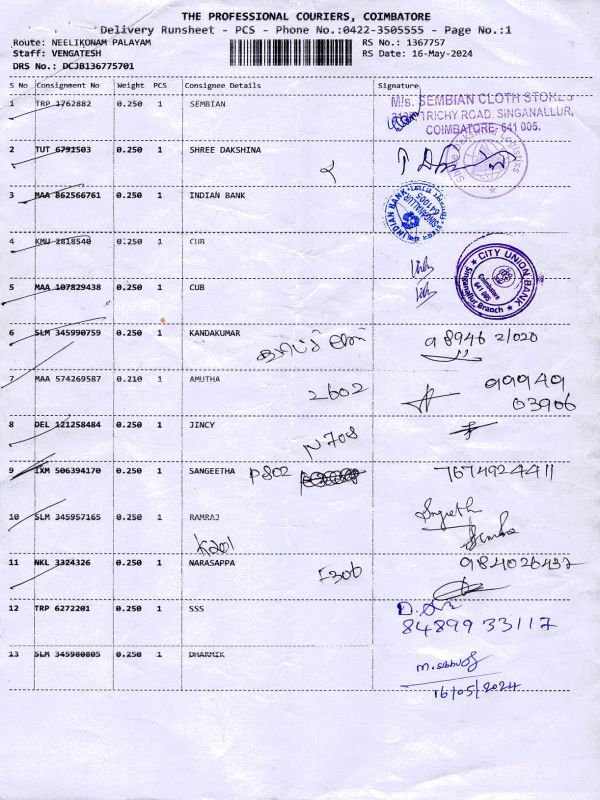 THE PROFESSIONAL COURIERS, COIMBATORE
Delivery Runsheet - PCS - Phone No.:0422-3505555 - Page No.:1
Route: NEELIKONAM PALAYAM
RS No.: 1367757
Staff: VENGATESH
RS Date: 16-May-2024
DRS No.: DCJB136775701
S No Consignment No Weight PCS Consignee Details Signature
1 TRP 1762882 0.250 1 SEMBIAN
M/s. SEMBIAN CLOTH STORES
TRICHY ROAD, SINGANALLUR,
COIMBATORE-641 005.
2 TUT 6791503 0.250 1 SHREE DAKSHINA
3 MAA 862566761 0.250 1 INDIAN BANK
INDIAN BANK
SINGANALLUR
641005
4 KMU 2818540 0.250 1 CUB
CITY UNION BANK
Coimbatore
641 005
Singanallur Branch
5 MAA 107829438 0.250 1 CUB
6 SLM 345990759 0.250 1 KANDAKUMAR
98946 21020
7 MAA 574269587 0.210 1 AMUTHA
2602
99949
03906
8 DEL 121258484 0.250 1 JINCY
N708
9 IXM 506394170 0.250 1 SANGEETHA P802
7674924411
10 SLM 345957165 0.250 1 RAMRAJ
K201
11 NKL 3324326 0.250 1 NARASAPPA
F306
984026437
12 TRP 6272201 0.250 1 SSS
84899 33117
13 SLM 345980805 0.250 1 DHARMIK
16/05/2024